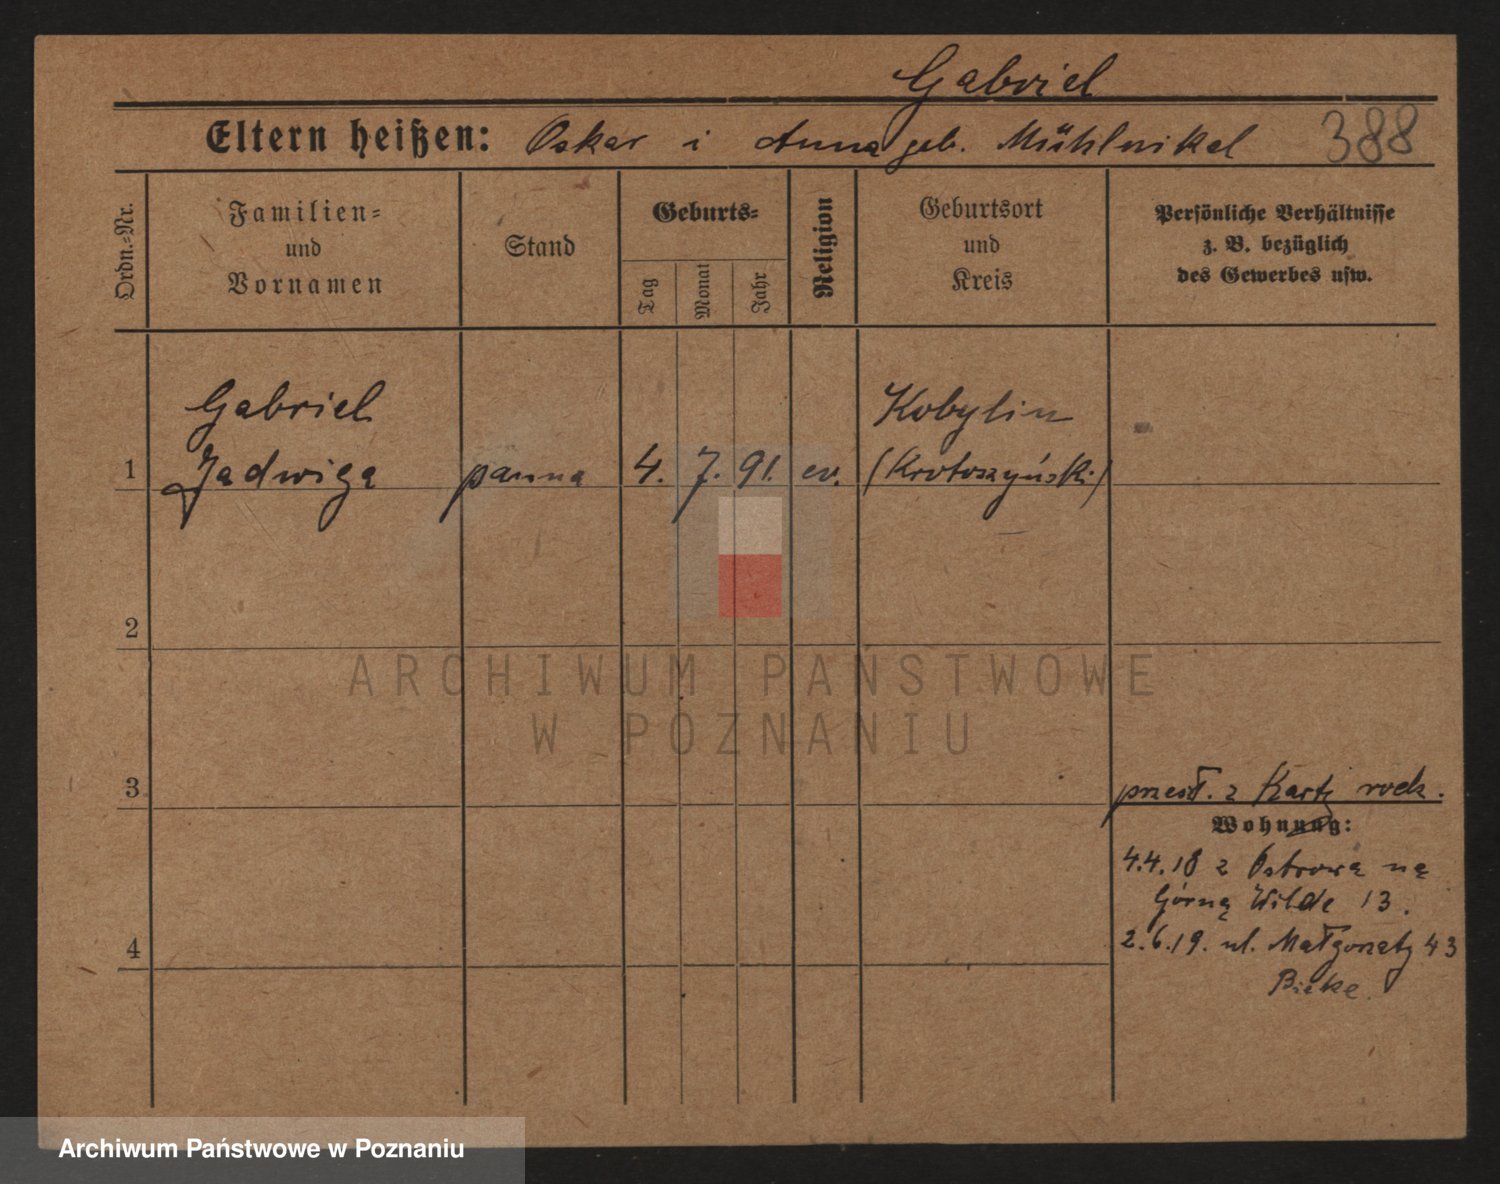 Gabriel
Eltern heißen: Oskar i Anna geb. Mühlnikel 388
Ordn.=Nr.
Familien=
und
Vornamen
Stand
Geburts=
Tag
Monat
Jahr
Religion
Geburtsort
und
Kreis
Persönliche Verhältnisse
z. B. bezüglich
des Gewerbes usw.
Gabriel Kobylin
1 Jadwiga panna 4. 7. 91. ev. (Krotoszyński)
2
ARCHIWUM PAŃSTWOWE
W POZNANIU
3
przesł. z Karty rodz.
Wohnung:
4.4.18 z Ostrowa na
Górną Wilde 13.
4
2.6.19. ul. Małgorzaty 43
Archiwum Państwowe w Poznaniu